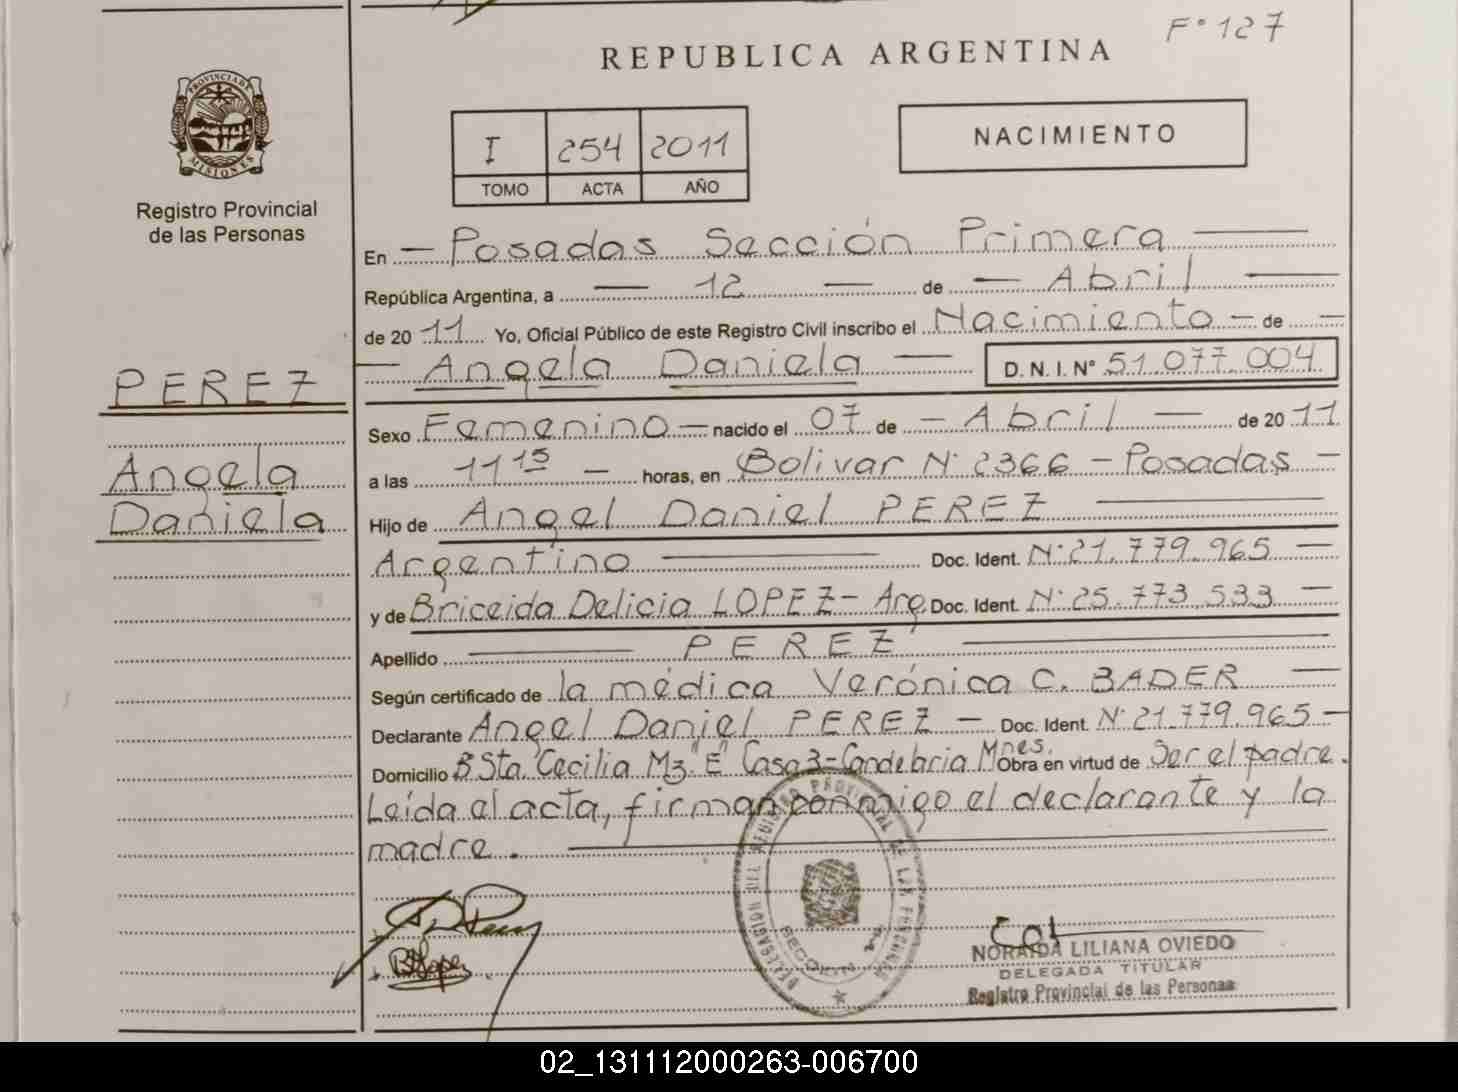 F° 127
REPUBLICA ARGENTINA
PROVINCIA DE MISIONES
Registro Provincial
de las Personas
I 254 2011
TOMO ACTA AÑO
NACIMIENTO
En — Posadas Sección Primera —
República Argentina, a — 12 — de — Abril —
de 20 11 Yo, Oficial Público de este Registro Civil inscribo el Nacimiento — de —
— Angela Daniela — D.N.I. N° 51.077.004
PEREZ
Angela
Daniela
Sexo Femenino — nacido el 07 de — Abril — de 20 11
a las 11 15 — horas, en Bolivar N° 2366 - Posadas —
Hijo de Angel Daniel PEREZ —
Argentino — Doc. Ident. N° 21.779.965 —
y de Briceida Delicia LOPEZ - Arg. Doc. Ident. N° 25.773.533 —
Apellido — PEREZ —
Según certificado de la médica Verónica C. BADER —
Declarante Angel Daniel PEREZ — Doc. Ident. N° 21.779.965 —
Domicilio B Sta. Cecilia Mz. "E" Casa 3 - Candelaria Mnes. Obra en virtud de Ser el padre.
Leída el acta, firman conmigo el declarante y la
madre. —
REGISTRO PROVINCIAL DE LAS PERSONAS
DELEGACION
NORAIDA LILIANA OVIEDO
DELEGADA TITULAR
Registro Provincial de las Personas
02_131112000263-006700